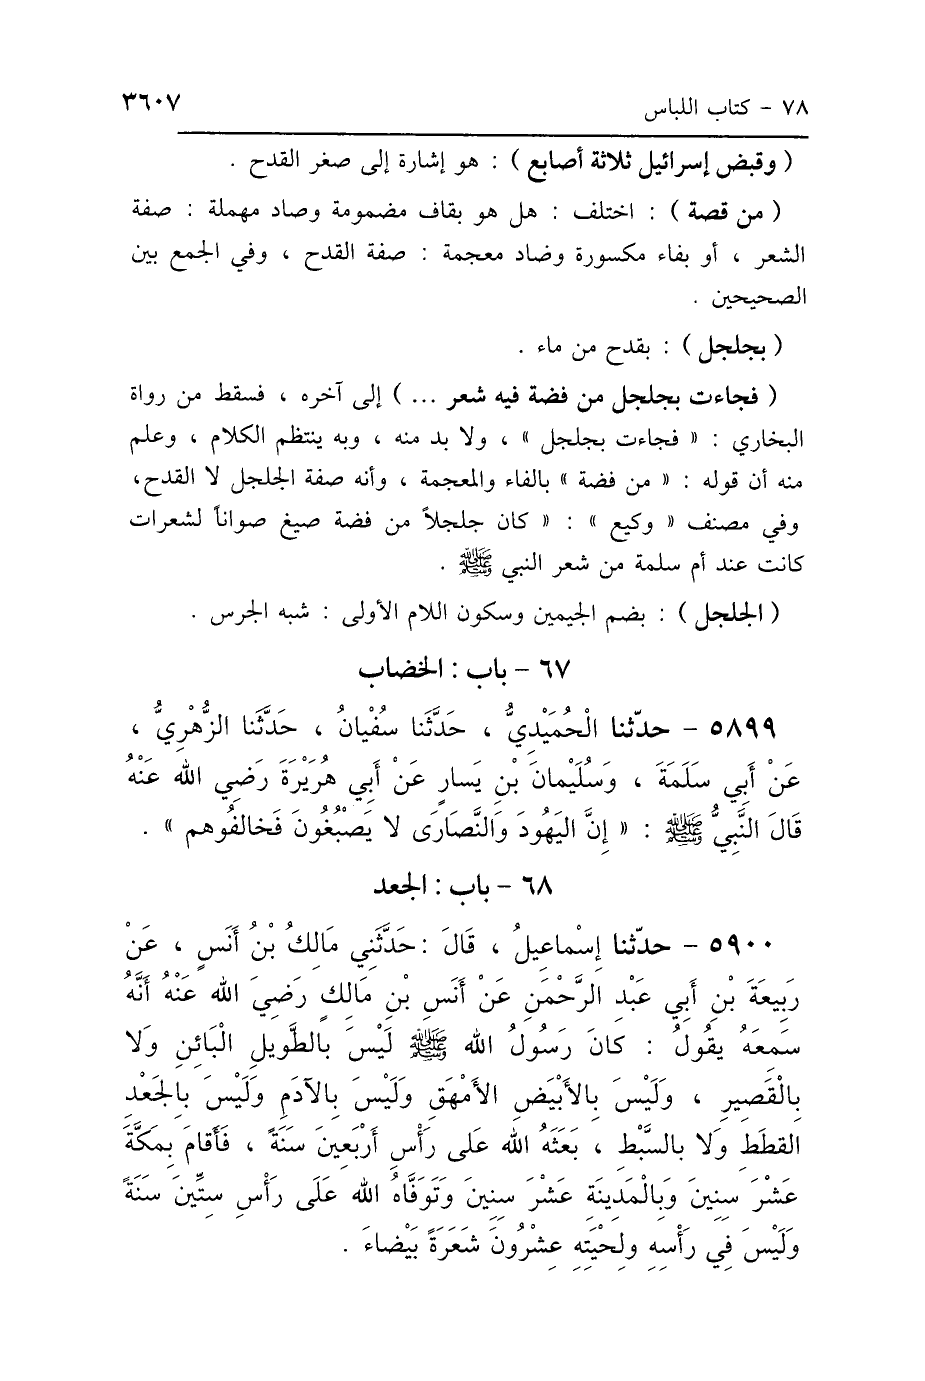 ٧٨ - كتاب اللباس ٣٦٠٧
( وقبض إسرائيل ثلاثة أصابع ) : هو إشارة إلى صغر القدح .
( من قصة ) : اختلف : هل هو بقاف مضمومة وصاد مهملة : صفة
الشعر ، أو بفاء مكسورة وضاد معجمة : صفة القدح ، وفي الجمع بين
الصحيحين .
( بجلجل ) : بقدح من ماء .
( فجاءت بجلجل من فضة فيه شعر ... ) إلى آخره ، فسقط من رواة
البخاري : « فجاءت بجلجل » ، ولا بد منه ، وبه ينتظم الكلام ، وعلم
منه أن قوله : « من فضة » بالفاء والمعجمة ، وأنه صفة الجلجل لا القدح،
وفي مصنف « وكيع » : « كان جلجلاً من فضة صيغ صواناً لشعرات
كانت عند أم سلمة من شعر النبي ﷺ .
( الجلجل ) : بضم الجيمين وسكون اللام الأولى : شبه الجرس .
٦٧ - باب : الخضاب
٥٨٩٩ - حدّثنا الْحُمَيْدِيُّ ، حَدَّثَنا سُفْيانُ ، حَدَّثَنا الزُّهْرِيُّ ،
عَنْ أَبِي سَلَمَةَ ، وَسُلَيْمانَ بْنِ يَسارٍ عَنْ أَبِي هُرَيْرَةَ رَضِي الله عَنْهُ
قَالَ النَّبِيُّ ﷺ : « إِنَّ اليَهُودَ وَالنَّصَارَى لا يَصْبُغُونَ فَخالفُوهم » .
٦٨ - باب : الجعد
٥٩٠٠ - حدّثنا إِسْماعِيلُ ، قَالَ :حَدَّثَنِي مَالِكُ بْنُ أَنَسٍ ، عَنْ
رَبِيعَةَ بْنِ أَبِي عَبْدِ الرَّحْمَنِ عَنْ أَنَسِ بْنِ مَالِكٍ رَضِيَ الله عَنْهُ أَنَّهُ
سَمِعَهُ يقُولُ : كانَ رَسُولُ الله ﷺ لَيْسَ بالطَّويلِ الْبَائِنِ وَلا
بِالْقَصِيرِ ، وَلَيْسَ بِالأَبْيَضِ الأَمْهَقِ وَلَيْسَ بِالآدَمِ وَلَيْسَ بِالجَعْدِ
القطَطِ وَلا بالسَّبْط ، بَعَثَهُ الله عَلى رَأْسِ أَرْبَعِينَ سَنَةً ، فَأَقامَ بِمَكَّةَ
عَشْرَ سِنِينَ وَبِالْمَدِينَةِ عَشْرَ سِنِينَ وَتَوَفَّاهُ الله عَلَى رَأْسِ ستِّينَ سَنَةً
وَلَيْسَ فِي رَأْسِهِ ولِحْيَتِهِ عِشْرُونَ شَعَرَةً بَيْضاءَ .